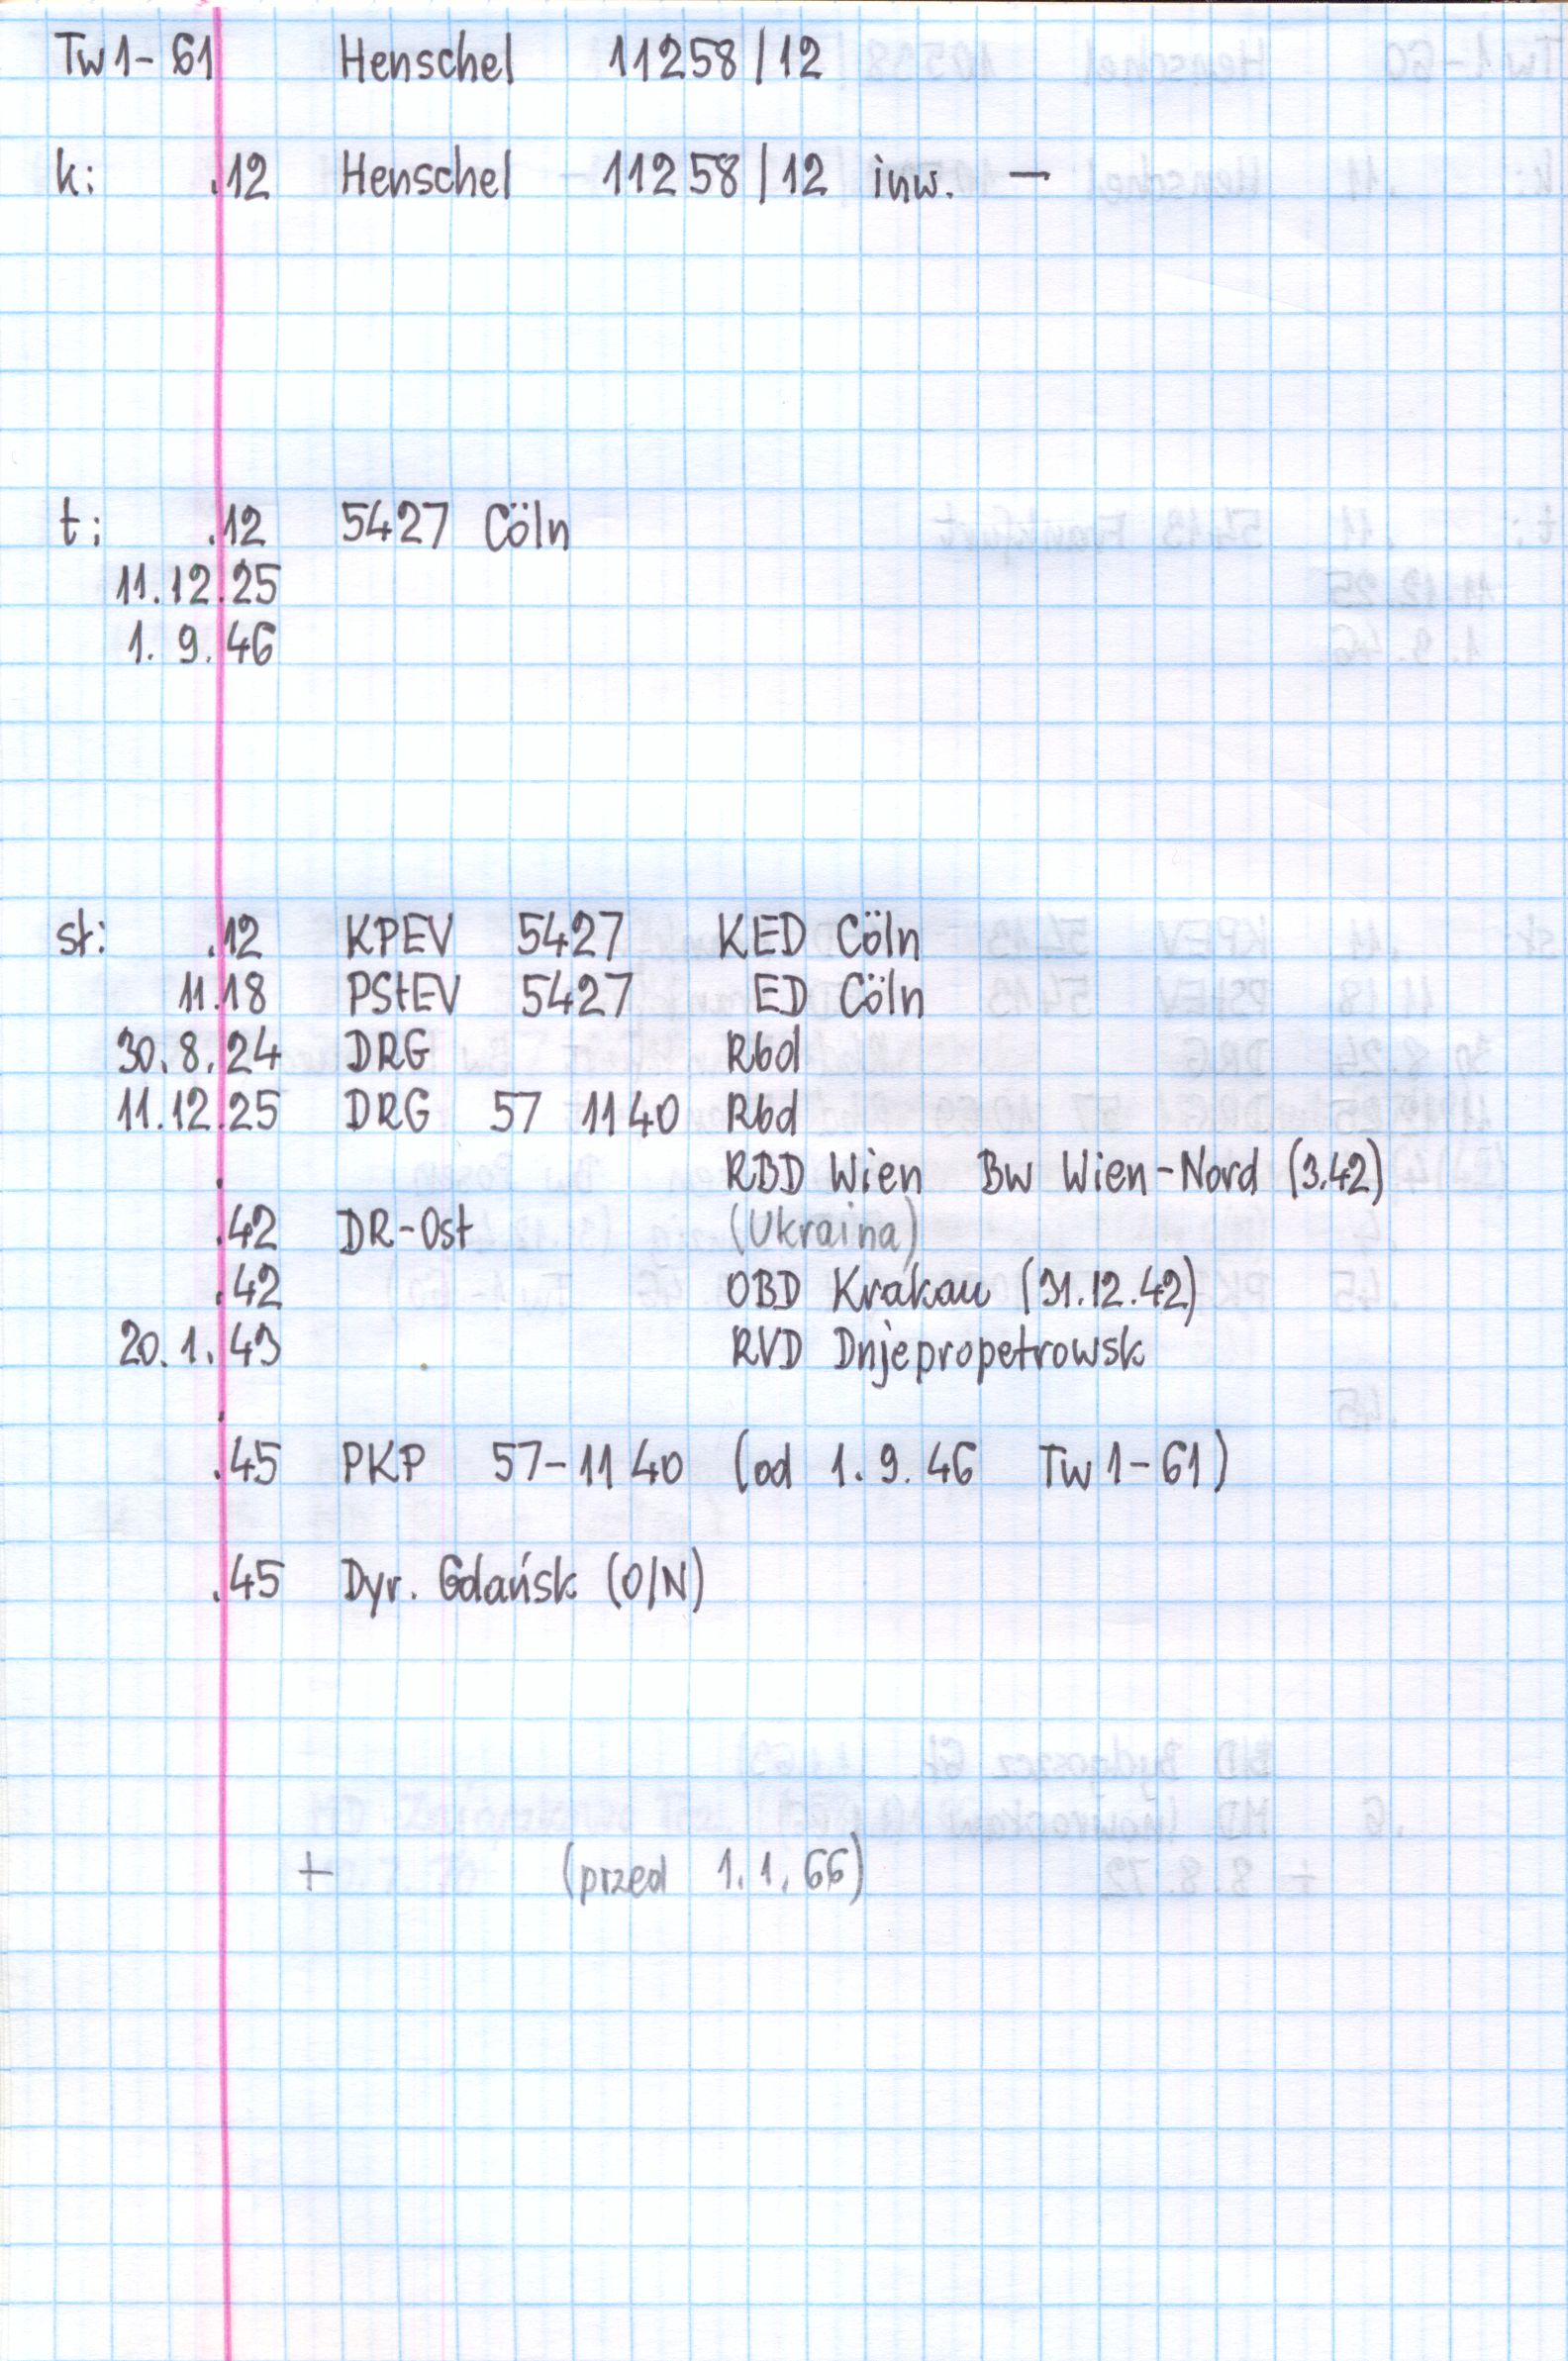 Tw1-61 Henschel 11258/12
k: .12 Henschel 11258/12 inw. —
t: .12 5427 Cöln
11.12.25
1. 9. 46
st: .12 KPEV 5427 KED Cöln
11.18 PStEV 5427 ED Cöln
30.8.24 DRG Rbd
11.12.25 DRG 57 1140 Rbd
. RBD Wien Bw Wien-Nord (3.42)
.42 DR-Ost (Ukraina)
.42 OBD Krakau (31.12.42)
20.1.43 RVD Dnjepropetrowsk
.
.45 PKP 57-1140 (od 1.9.46 Tw1-61)
.45 Dyr. Gdańsk (O/N)
+ (przed 1.1.66)